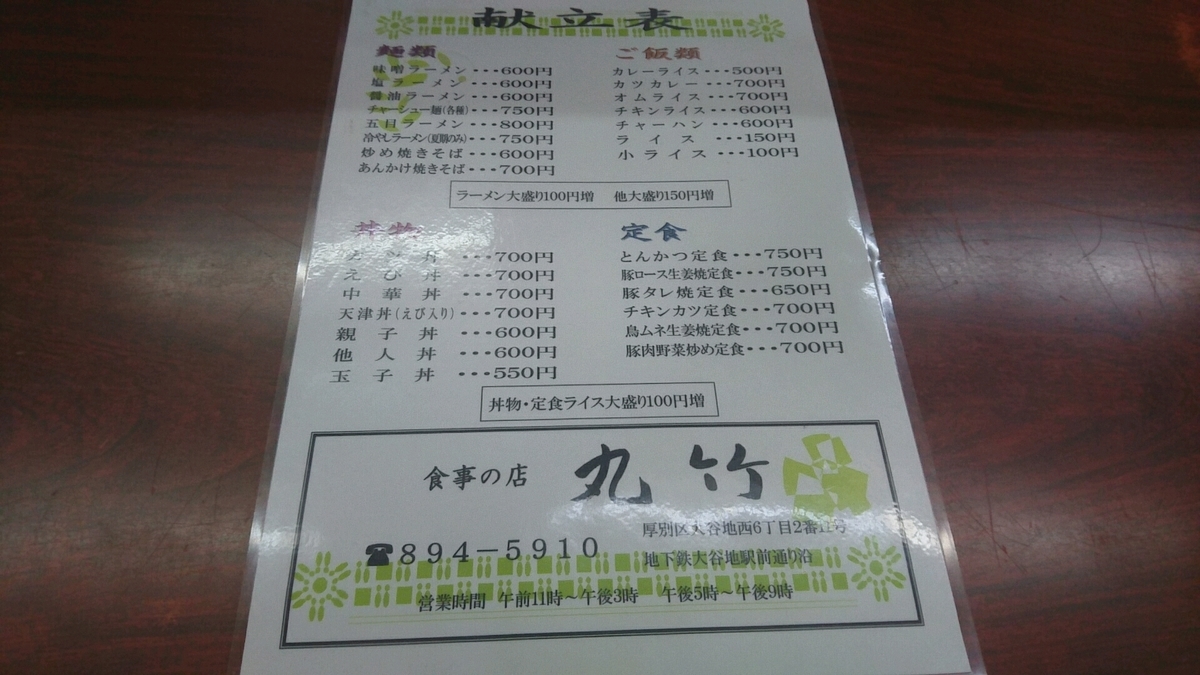 献立表
麺類
味噌ラーメン・・・600円
塩ラーメン・・・600円
醤油ラーメン・・・600円
チャーシュー麺(各種)・・・750円
五目ラーメン・・・800円
冷やしラーメン(夏期のみ)・・・750円
炒め焼きそば・・・600円
あんかけ焼きそば・・・700円
ご飯類
カレーライス・・・500円
カツカレー・・・700円
オムライス・・・700円
チキンライス・・・600円
チャーハン・・・600円
ライス・・・150円
小ライス・・・100円
ラーメン大盛り100円増 他大盛り150円増
丼物
丼・・・700円
えび丼・・・700円
中華丼・・・700円
天津丼(えび入り)・・・700円
親子丼・・・600円
他人丼・・・600円
玉子丼・・・550円
定食
とんかつ定食・・・750円
豚ロース生姜焼定食・・・750円
豚タレ焼定食・・・650円
チキンカツ定食・・・700円
鳥ムネ生姜焼定食・・・700円
豚肉野菜炒め定食・・・700円
丼物・定食ライス大盛り100円増
食事の店 丸竹
厚別区大谷地西6丁目2番11号
☎894-5910
地下鉄大谷地駅前通り沿
営業時間 午前11時～午後3時 午後5時～午後9時